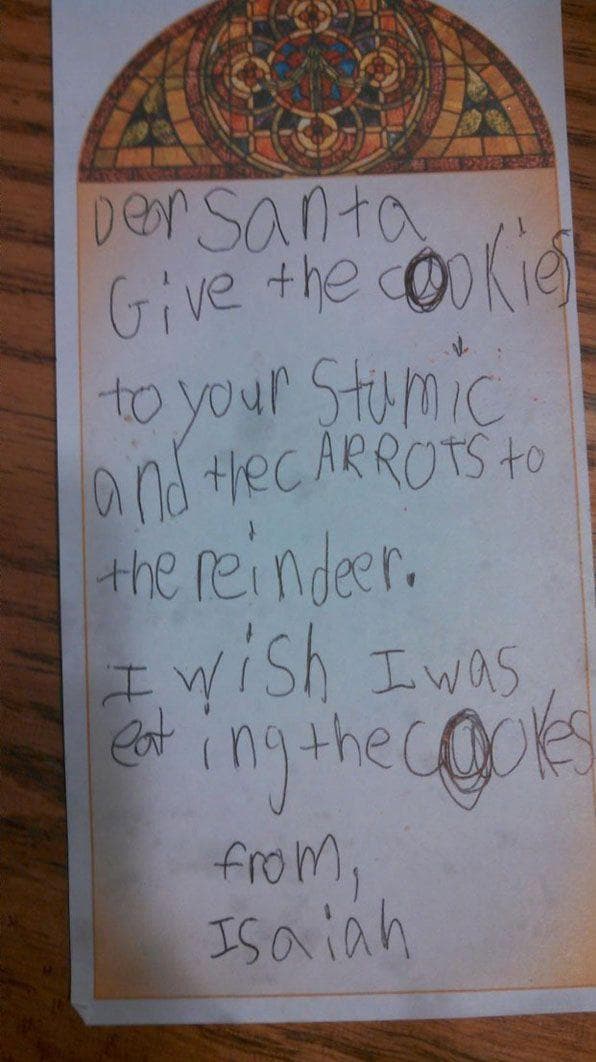 Dear Santa
Give the cookies
to your Stumic
and the CARROTS to
the reindeer.
I wish I was
eating the cookes
from,
Isaiah